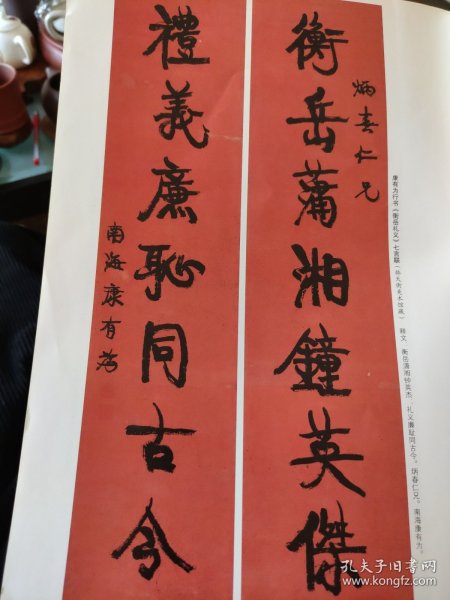 衡岳萧湘鐘英傑
炳春仁兄
禮義廉恥同古今
南海康有為
康有为行书《衡岳礼义》七言联（徐天街美术馆藏） 释文：衡岳潇湘钟英杰；礼义廉耻同古今。炳春仁兄。南海康有为。
孔夫子旧书网
www.kongfz.com